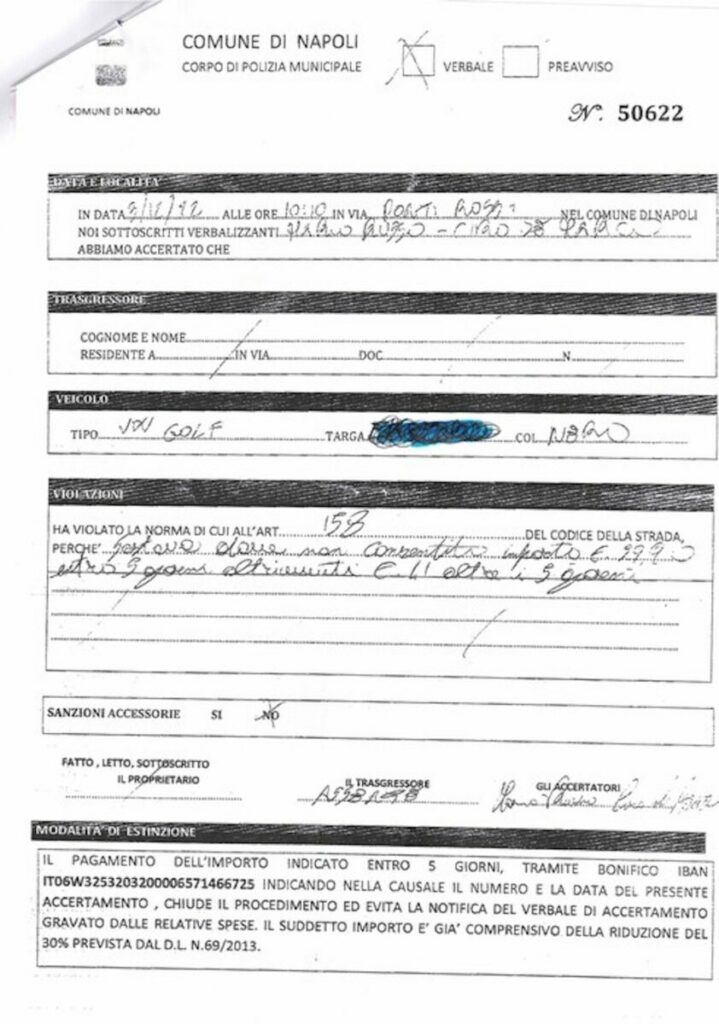 COMUNE DI NAPOLI
CORPO DI POLIZIA MUNICIPALE
VERBALE PREAVVISO
COMUNE DI NAPOLI
N°. 50622
DATA E LOCALITA'
IN DATA ALLE ORE 10:10 IN VIA PONTI ROSSI NEL COMUNE DI NAPOLI
NOI SOTTOSCRITTI VERBALIZZANTI
ABBIAMO ACCERTATO CHE
TRASGRESSORE
COGNOME E NOME
RESIDENTE A IN VIA DOC N
VEICOLO
TIPO VW GOLF TARGA COL NERO
VIOLAZIONI
HA VIOLATO LA NORMA DI CUI ALL'ART. 158 DEL CODICE DELLA STRADA,
PERCHE' sostava dove non consentito importo €
entro 5 giorni altrimenti € oltre i 5 giorni
SANZIONI ACCESSORIE SI NO
FATTO , LETTO, SOTTOSCRITTO
IL PROPRIETARIO IL TRASGRESSORE GLI ACCERTATORI
ASSENTE
MODALITA' DI ESTINZIONE
IL PAGAMENTO DELL'IMPORTO INDICATO ENTRO 5 GIORNI, TRAMITE BONIFICO IBAN
IT06W3253203200006571466725 INDICANDO NELLA CAUSALE IL NUMERO E LA DATA DEL PRESENTE
ACCERTAMENTO , CHIUDE IL PROCEDIMENTO ED EVITA LA NOTIFICA DEL VERBALE DI ACCERTAMENTO
GRAVATO DALLE RELATIVE SPESE. IL SUDDETTO IMPORTO E' GIA' COMPRENSIVO DELLA RIDUZIONE DEL
30% PREVISTA DAL D.L. N.69/2013.